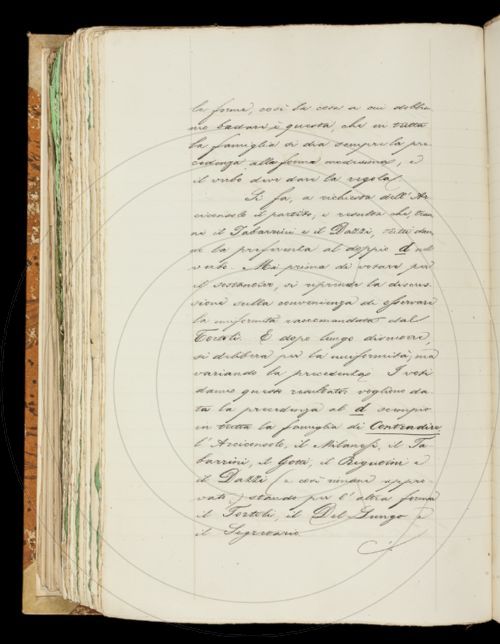 la forma, così la cosa a cui debbia-
mo badare è questa, che in tutta
la famiglia si dia sempre la pre-
cedenza alla forma medesima, e
il verbo deve dare la regola.
Si fa, a richiesta dell'Ar-
ciconsolo il partito, e resulta che, tran-
ne il Tabarrini e il Dazzi, tutti dan-
no la preferenza al doppio d nel
verbo. Ma prima di votare pel
il sostantivo, si riprende la discus-
sione sulla convenienza di osservare
la uniformità raccomandata dal
Tortoli. E dopo lungo discorrere,
si delibera per la uniformità, ma
variando la precedenza. I voti
danno questo resultato: vogliono da-
ta la precedenza al d scempio
in tutta la famiglia di Contradire
l'Arciconsolo, il Milanesi, il Ta-
barrini, il Gotti, il Rigutini e
il Dazzi (e così rimane appro-
vato,) stando per l'altra forma
il Tortoli, il Del Lungo e
il Segretario.